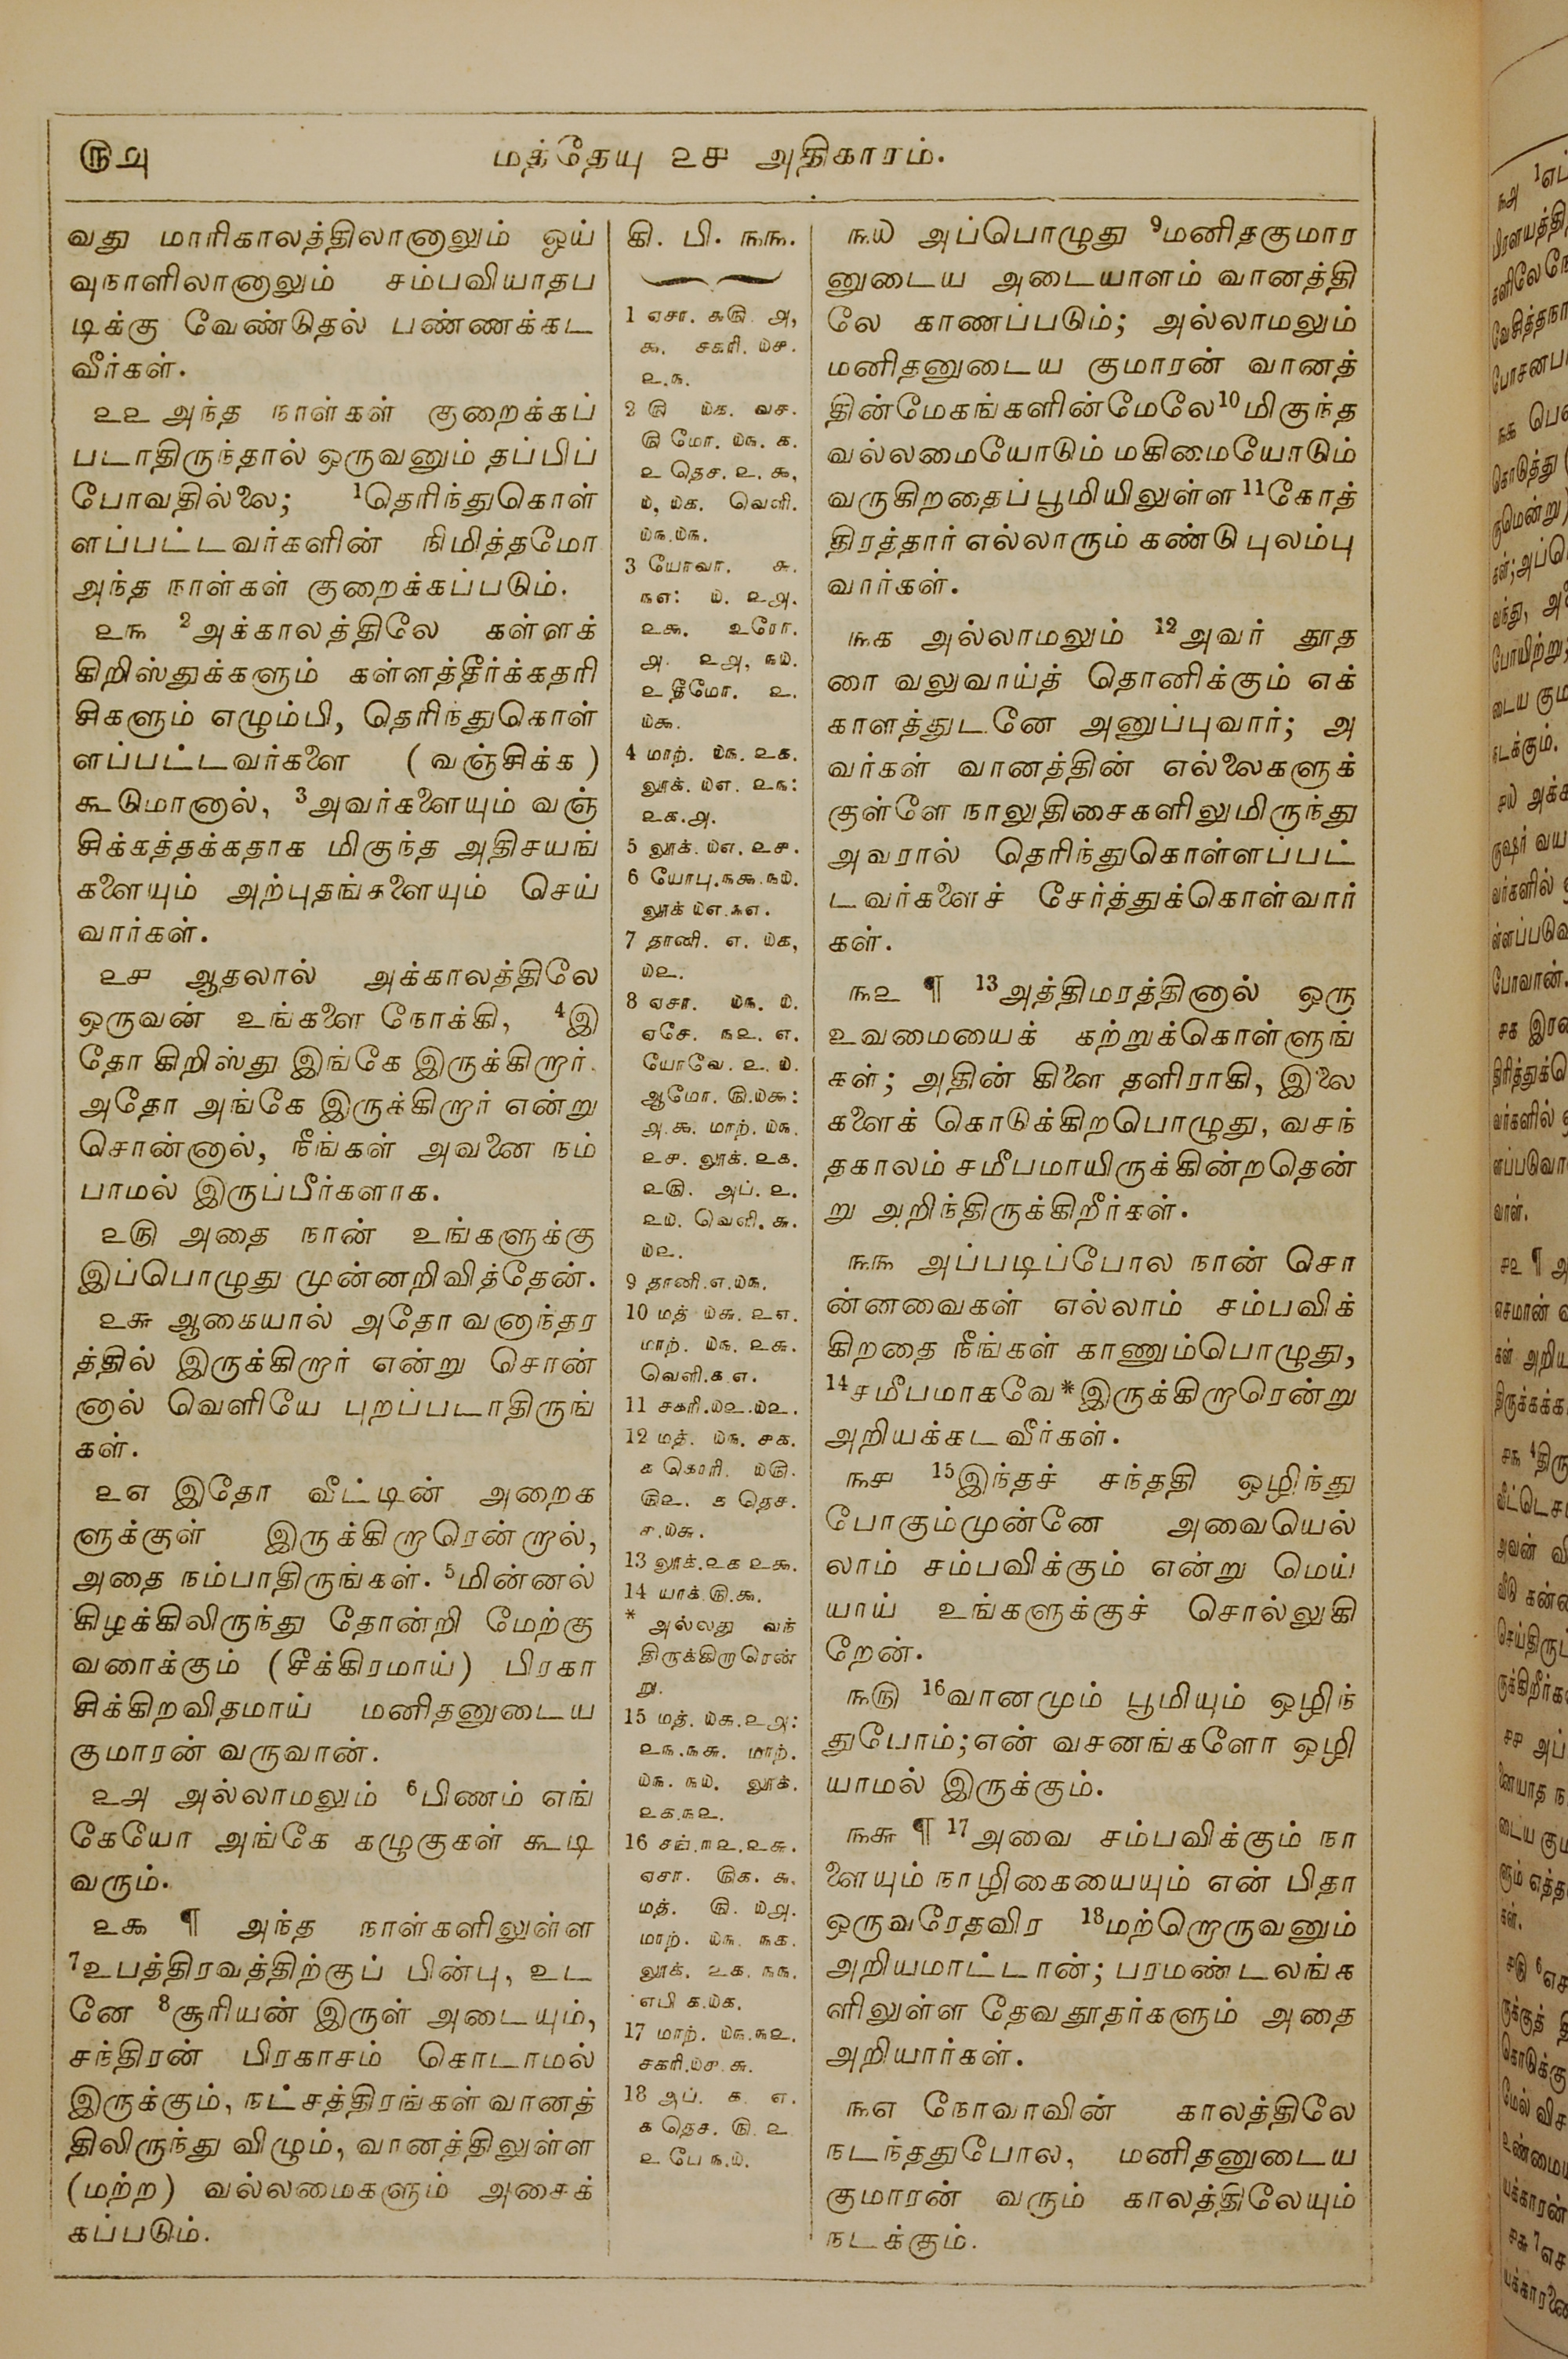 ௫௮
மத்தேயு ௨௪ அதிகாரம்.
வது மாரிகாலத்திலானாலும் ஓய்
வுநாளிலானாலும் சம்பவியாதப
டிக்கு வேண்டுதல் பண்ணக்கட
வீர்கள்.
௨௨ அந்த நாள்கள் குறைக்கப்
படாதிருந்தால் ஒருவனும் தப்பிப்
போவதில்லை; 1தெரிந்துகொள்
ளப்பட்டவர்களின் நிமித்தமோ
அந்த நாள்கள் குறைக்கப்படும்.
௨௩ 2அக்காலத்திலே கள்ளக்
கிறிஸ்துக்களும் கள்ளத்தீர்க்கதரி
சிகளும் எழும்பி, தெரிந்துகொள்
ளப்பட்டவர்களை (வஞ்சிக்க)
கூடுமானால், 3அவர்களையும் வஞ்
சிக்கத்தக்கதாக மிகுந்த அதிசயங்
களையும் அற்புதங்களையும் செய்
வார்கள்.
௨௪ ஆதலால் அக்காலத்திலே
ஒருவன் உங்களை நோக்கி, 4இ
தோ கிறிஸ்து இங்கே இருக்கிறார்.
அதோ அங்கே இருக்கிறார் என்று
சொன்னால், நீங்கள் அவனை நம்
பாமல் இருப்பீர்களாக.
௨௫ அதை நான் உங்களுக்கு
இப்பொழுது முன்னறிவித்தேன்.
௨௬ ஆகையால் அதோ வனாந்தர
த்தில் இருக்கிறார் என்று சொன்
னால் வெளியே புறப்படாதிருங்
கள்.
௨௭ இதோ வீட்டின் அறைக
ளுக்குள் இருக்கிறாரென்றால்,
அதை நம்பாதிருங்கள். 5மின்னல்
கிழக்கிலிருந்து தோன்றி மேற்கு
வரைக்கும் (சீக்கிரமாய்) பிரகா
சிக்கிறவிதமாய் மனிதனுடைய
குமாரன் வருவான்.
௨௮ அல்லாமலும் 6பிணம் எங்
கேயோ அங்கே கழுகுகள் கூடி
வரும்.
௨௯ ¶ அந்த நாள்களிலுள்ள
7உபத்திரவத்திற்குப் பின்பு, உட
னே 8சூரியன் இருள் அடையும்,
சந்திரன் பிரகாசம் கொடாமல்
இருக்கும், நட்சத்திரங்கள் வானத்
திலிருந்து விழும், வானத்திலுள்ள
(மற்ற) வல்லமைகளும் அசைக்
கப்படும்.
கி. பி. ௩௩.
1 ஏசா. ௬௫. ௮,
௯. சகரி. ௰௪.
௨.௩.
2 ௫ ௰௧. வச.
௫ மோ. ௰௩. ௧.
௨ தெச. ௨. ௯,
௰, ௰௧. வெளி.
௰௩.௰௩.
3 யோவா. ௬.
௩௭: ௰. ௨௮.
௨௯. உரோ.
௮. ௨௮, ௩௰.
௨ தீமோ. ௨.
௰௯.
4 மாற். ௰௩. ௨௧.
லூக். ௰௭. ௨௩:
௨௧.௮.
5 லூக். ௰௭. ௨௪.
6 யோபு.௩௯.௩௰.
லூக் ௰௭.௩௭.
7 தானி. ௭. ௰௧,
௰௨.
8 ஏசா. ௰௩. ௰.
ஏசே. ௩௨. ௭.
யோவே. ௨. ௰.
ஆமோ. ௫.௰௯:
௮.௯. மாற். ௰௩.
௨௪. லூக். ௨௧.
௨௫. அப். ௨.
௨௰. வெளி. ௬.
௰௨.
9 தானி.௭.௰௩.
10 மத் ௰௬. ௨௭.
மாற். ௰௩. ௨௬.
வெளி.௧.௭.
11 சகரி.௰௨.௰௨.
12 மத். ௰௩. ௪௧.
௧ கொரி. ௰௫.
௫௨. ௧ தெச.
௪.௰௬.
13 லூக்.௨௧ ௨௯.
14 யாக்.௫.௯.
* அல்லது வந்
திருக்கிறாரென்
று.
15 மத். ௰௬.௨௮:
௨௩.௩௬. மாற்.
௰௩. ௩௰. லூக்.
௨௧.௩௨.
16 சங்.௱௨.௨௬.
ஏசா. ௫௧. ௬.
மத். ௫. ௰௮.
மாற். ௰௩. ௩௧.
லூக். ௨௧. ௩௩.
எபி ௧.௰௧.
17 மாற். ௰௩.௩௨.
சகரி.௰௪.௬.
18 அப். ௧. ௭.
௧ தெச. ௫. ௨
௨ பே ௩.௰.
௩௰ அப்பொழுது 9மனிதகுமார
னுடைய அடையாளம் வானத்தி
லே காணப்படும்; அல்லாமலும்
மனிதனுடைய குமாரன் வானத்
தின்மேகங்களின்மேலே 10மிகுந்த
வல்லமையோடும் மகிமையோடும்
வருகிறதைப் பூமியிலுள்ள 11கோத்
திரத்தார் எல்லாரும் கண்டு புலம்பு
வார்கள்.
௩௧ அல்லாமலும் 12அவர் தூத
ரை வலுவாய்த் தொனிக்கும் எக்
காளத்துடனே அனுப்புவார்; அ
வர்கள் வானத்தின் எல்லைகளுக்
குள்ளே நாலுதிசைகளிலுமிருந்து
அவரால் தெரிந்துகொள்ளப்பட்
டவர்களைச் சேர்த்துக்கொள்வார்
கள்.
௩௨ ¶ 13அத்திமரத்தினால் ஒரு
உவமையைக் கற்றுக்கொள்ளுங்
கள்; அதின் கிளை தளிராகி, இலை
களைக் கொடுக்கிறபொழுது, வசந்
தகாலம் சமீபமாயிருக்கின்றதென்
று அறிந்திருக்கிறீர்கள்.
௩௩ அப்படிப்போல நான் சொ
ன்னவைகள் எல்லாம் சம்பவிக்
கிறதை நீங்கள் காணும்பொழுது,
14சமீபமாகவே*இருக்கிறாரென்று
அறியக்கடவீர்கள்.
௩௪ 15இந்தச் சந்ததி ஒழிந்து
போகும்முன்னே அவையெல்
லாம் சம்பவிக்கும் என்று மெய்
யாய் உங்களுக்குச் சொல்லுகி
றேன்.
௩௫ 16வானமும் பூமியும் ஒழிந்
துபோம்; என் வசனங்களோ ஒழி
யாமல் இருக்கும்.
௩௬ ¶ 17அவை சம்பவிக்கும் நா
ளையும் நாழிகையையும் என் பிதா
ஒருவரேதவிர 18மற்றொருவனும்
அறியமாட்டான்; பரமண்டலங்க
ளிலுள்ள தேவதூதர்களும் அதை
அறியார்கள்.
௩௭ நோவாவின் காலத்திலே
நடந்ததுபோல, மனிதனுடைய
குமாரன் வரும் காலத்திலேயும்
நடக்கும்.